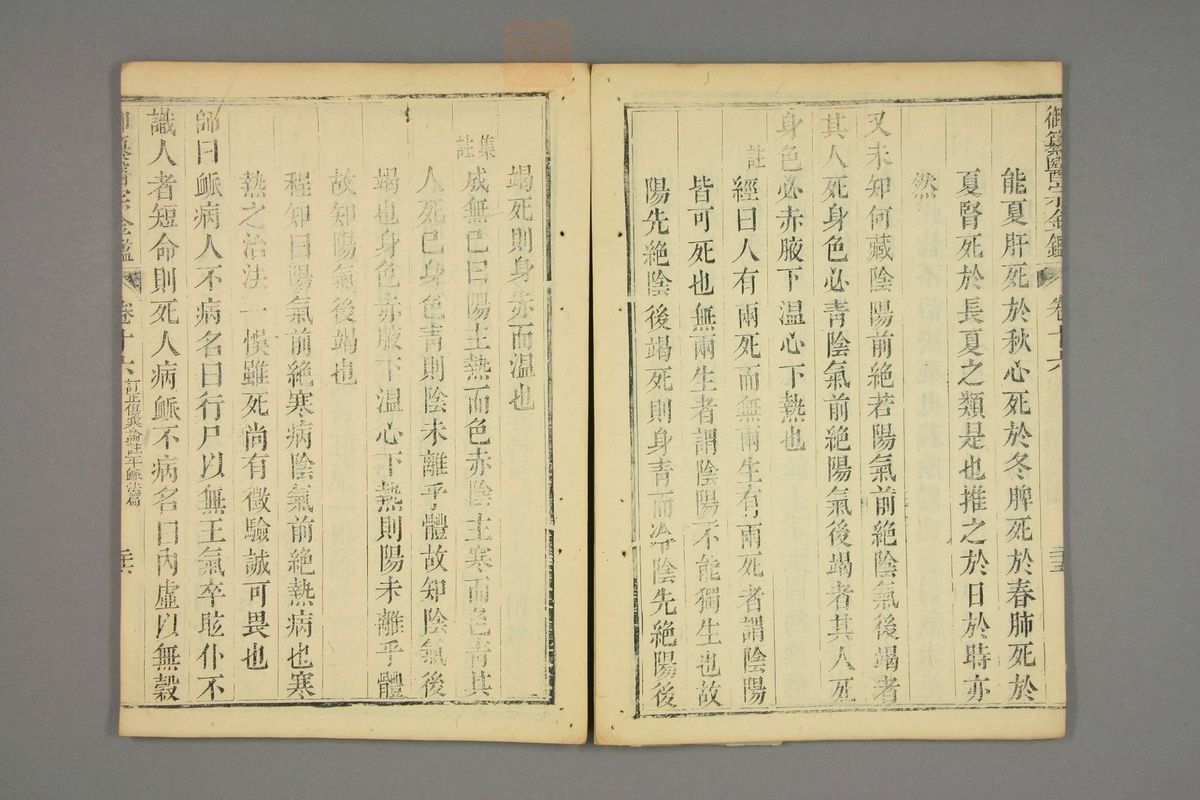 御纂醫宗金鑑 卷十六
能夏肝死於秋心死於冬脾死於春肺死於
夏腎死於長夏之類是也推之於日於時亦
然
又未知何藏陰陽前絕若陽氣前絕陰氣後竭者
其人死身色必青陰氣前絕陽氣後竭者其人死
身色必赤腋下温心下熱也
註
經曰人有兩死而無兩生有兩死者謂陰陽
皆可死也無兩生者謂陰陽不能獨生也故
陽先絕陰後竭死則身青而冷陰先絕陽後
竭死則身赤而温也
集註
成無已曰陽主熱而色赤陰主寒而色青其
人死已身色青則陰未離乎體故知陰氣後
竭也身色赤腋下温心下熱則陽未離乎體
故知陽氣後竭也
程知曰陽氣前絕寒病陰氣前絕熱病也寒
熱之治法一悞雖死尚有徵驗誠可畏也
師曰脈病人不病名曰行尸以無王氣卒眩仆不
識人者短命則死人病脈不病名曰內虛以無穀
御纂醫宗金鑑 卷十六 訂正傷寒論註平脈法篇